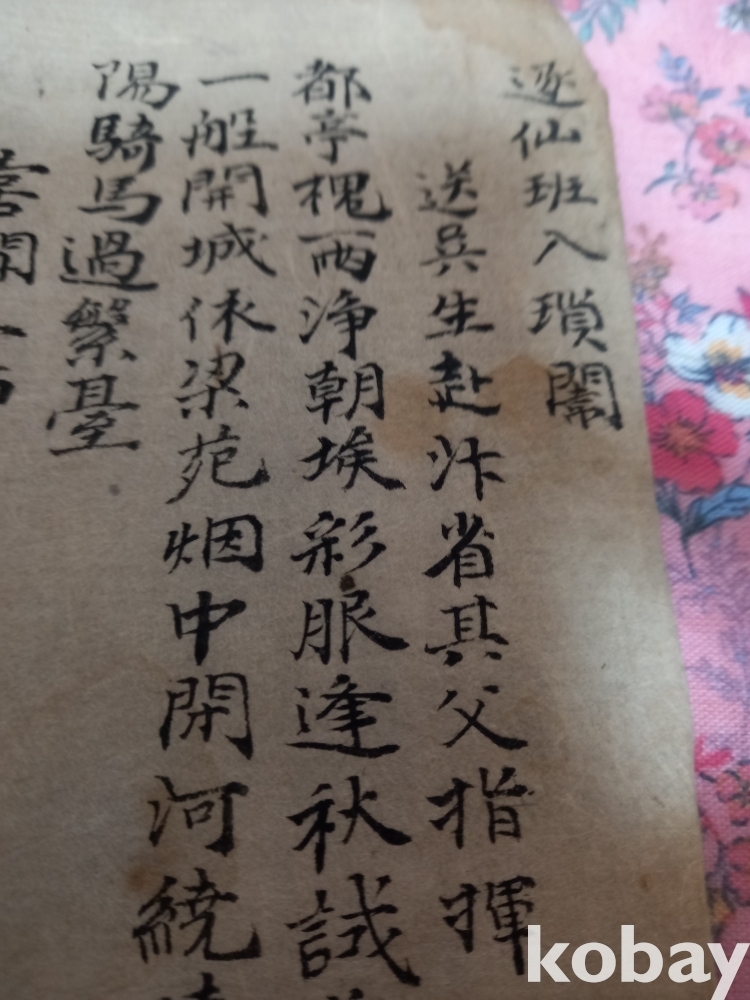 逐仙班入瑣闈
送吳生赴汴省其父指揮
都亭槐雨浄朝埃彩服逢秋誠
一般開城依梁苑烟中閑河繞
陽騎馬過繁臺
喜聞
kobay